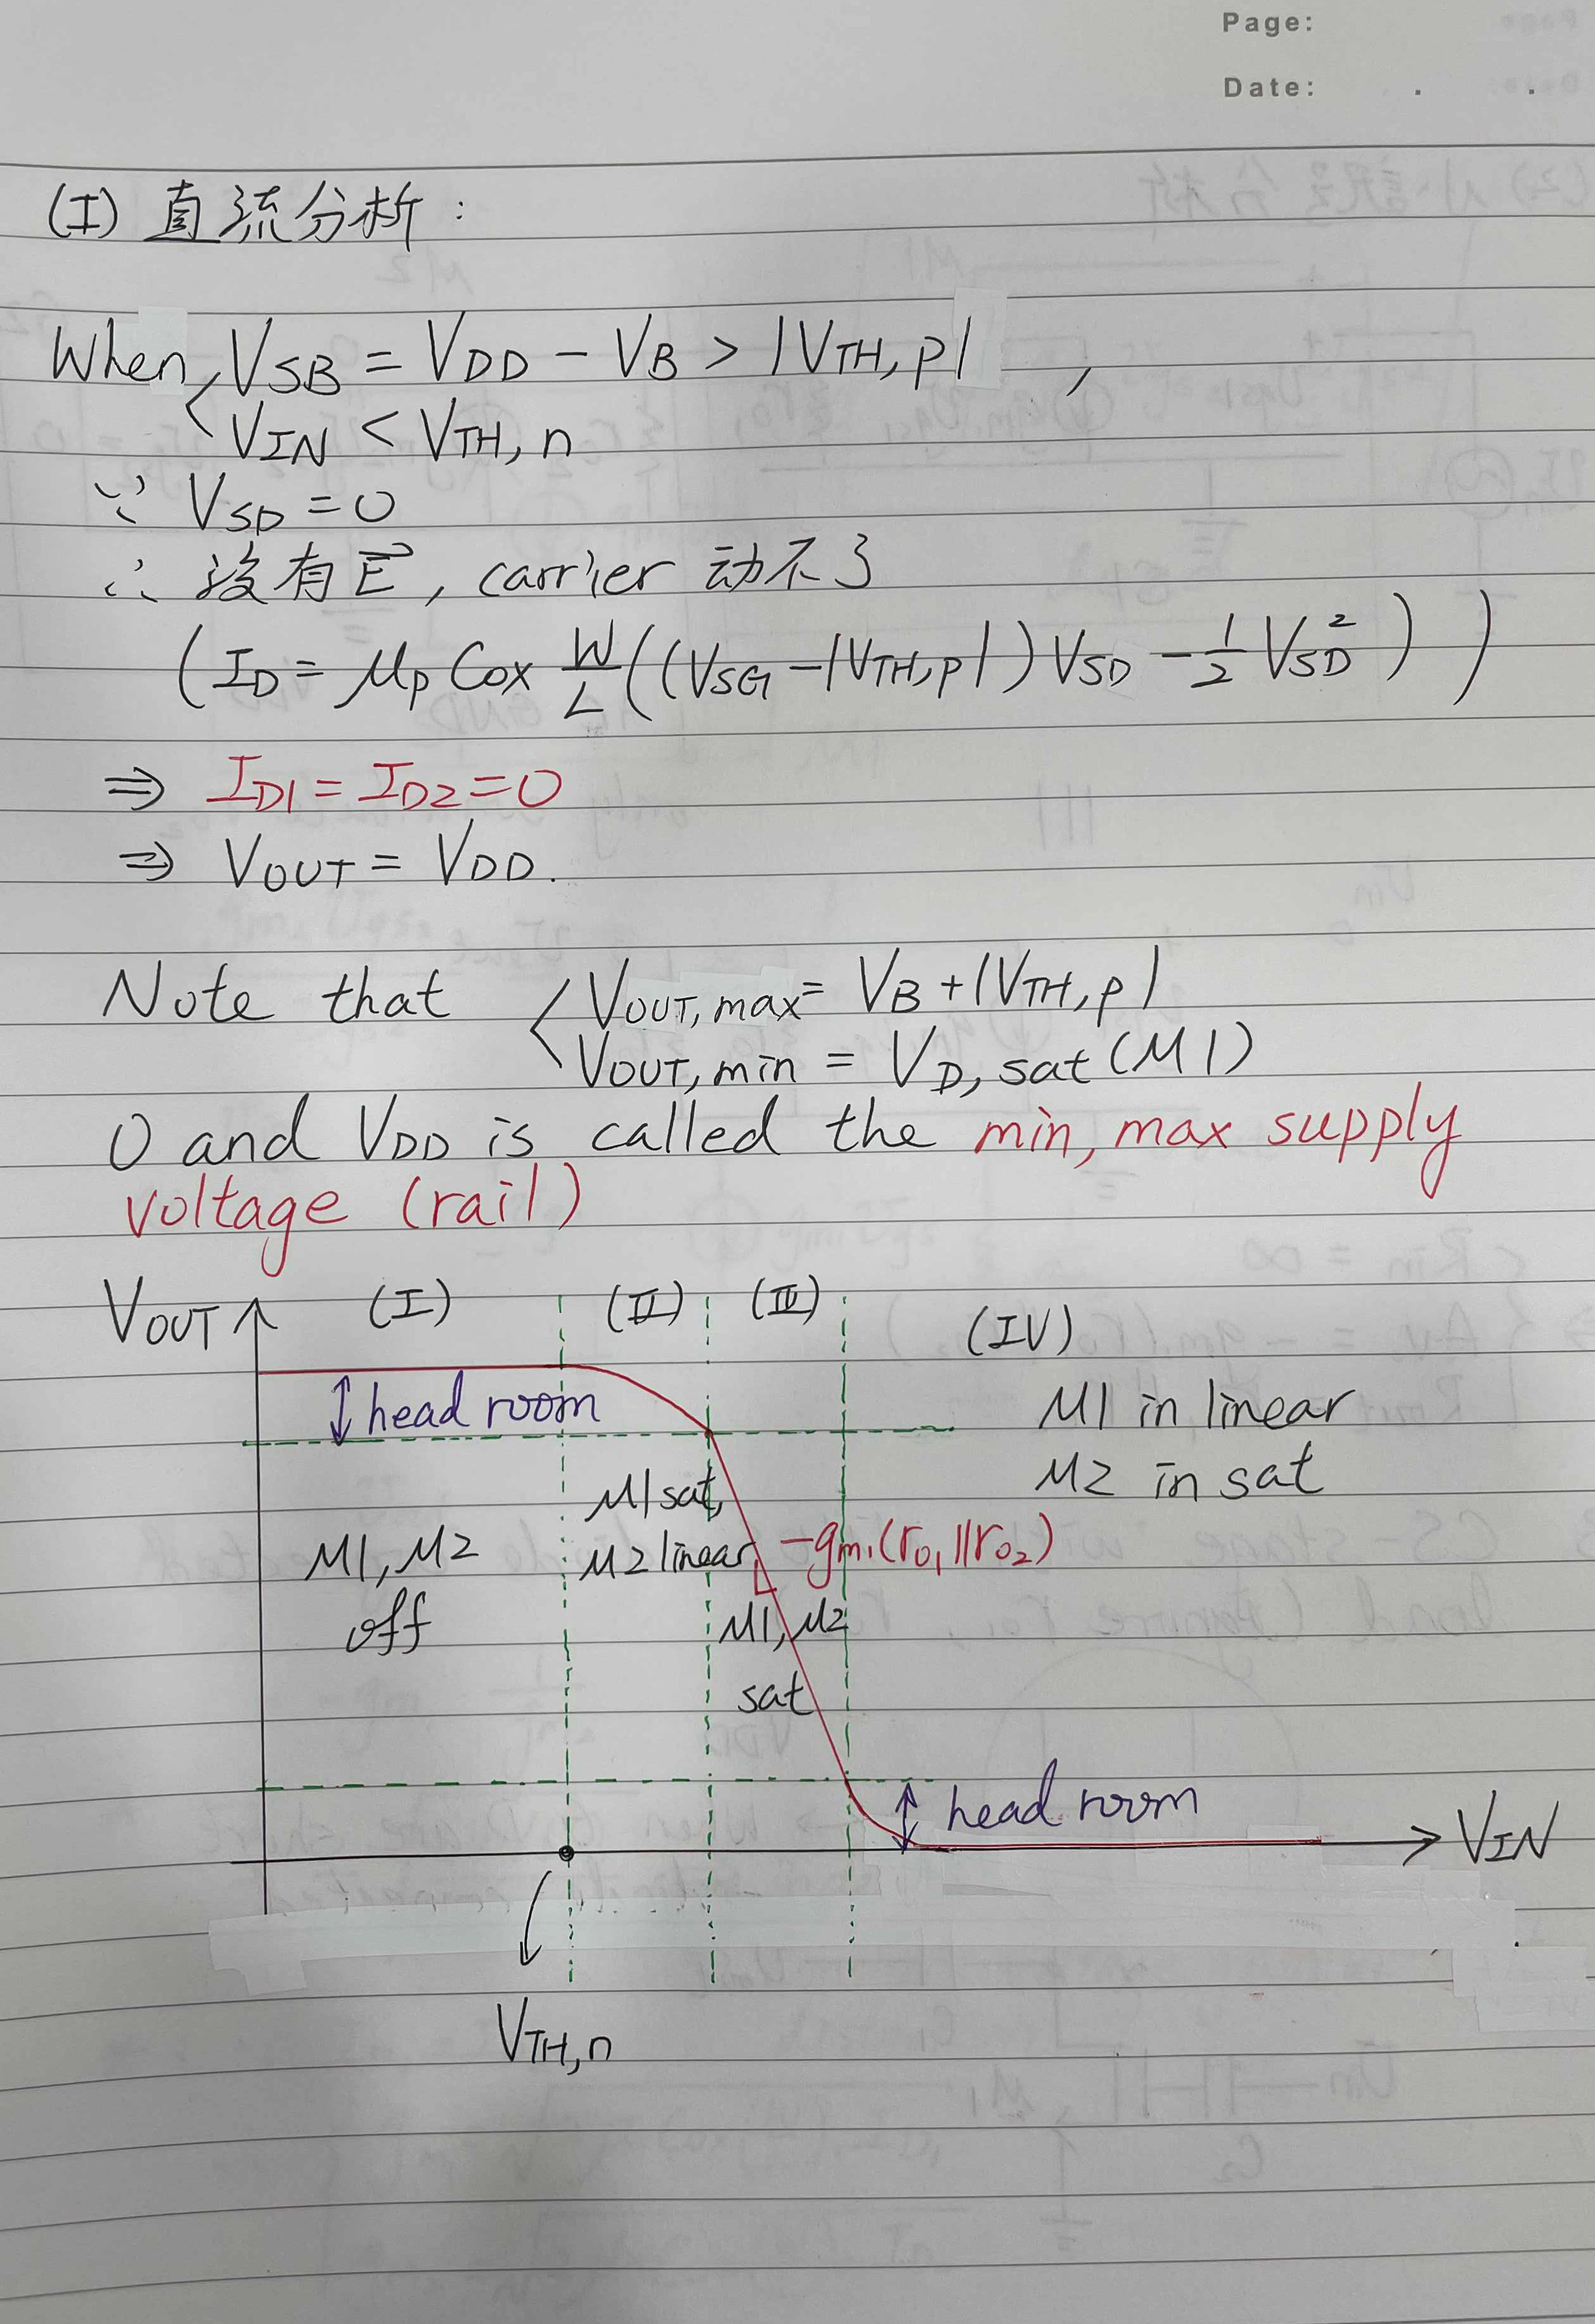 Page:
Date: . .
(I) 直流分析 :
When, VSB = VDD - VB > |VTH,p| ,
VIN < VTH,n
∵ VSD = 0
∴ 沒有 E⃗, carrier 动不了
(ID = μp Cox W/L ((VSG - |VTH,p|) VSD - 1/2 VSD²))
⇒ ID1 = ID2 = 0
⇒ VOUT = VDD.
Note that { VOUT,max = VB + |VTH,p|
VOUT,min = VD,sat (M1)
0 and VDD is called the min, max supply
voltage (rail)
VOUT (I) (II) (III) (IV)
head room
M1 in linear
M2 in sat
M1, M2
off
M1 sat,
M2 linear
-gm1(ro1||ro2)
M1, M2
sat
head room
VIN
VTH,n